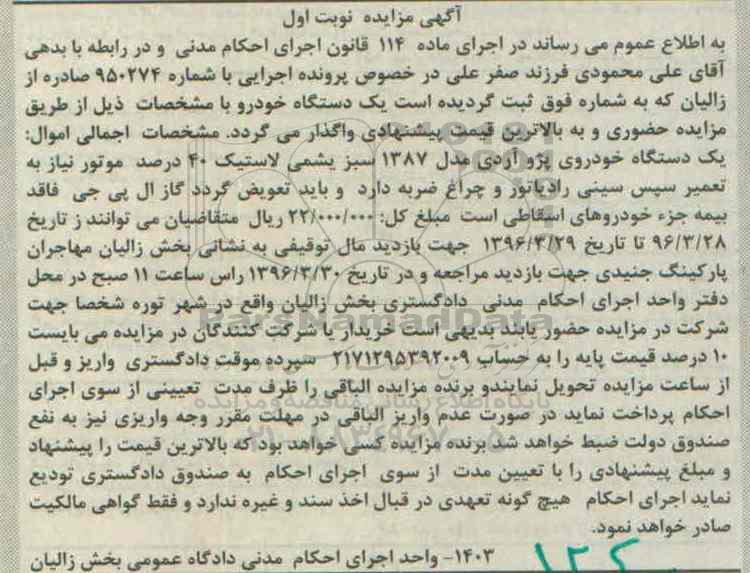 آگهی مزایده نوبت اول
به اطلاع عموم می رساند در اجرای ماده ۱۱۴ قانون اجرای احکام مدنی و در رابطه با بدهی
آقای علی محمودی فرزند صفر علی در خصوص پرونده اجرایی با شماره ۹۵۰۲۷۴ صادره از
زالیان که به شماره فوق ثبت گردیده است یک دستگاه خودرو با مشخصات ذیل از طریق
مزایده حضوری و به بالاترین قیمت پیشنهادی واگذار می گردد. مشخصات اجمالی اموال:
یک دستگاه خودروی پژو آردی مدل ۱۳۸۷ سبز یشمی لاستیک ۴۰ درصد موتور نیاز به
تعمیر سپس سینی رادیاتور و چراغ ضربه دارد و باید تعویض گردد گاز ال پی جی فاقد
بیمه جزء خودروهای اسقاطی است مبلغ کل: ۲۲/۰۰۰/۰۰۰ ریال متقاضیان می توانند ز تاریخ
۹۶/۳/۲۸ تا تاریخ ۱۳۹۶/۳/۲۹ جهت بازدید مال توقیفی به نشانی بخش زالیان مهاجران
پارکینگ جنیدی جهت بازدید مراجعه و در تاریخ ۱۳۹۶/۳/۳۰ راس ساعت ۱۱ صبح در محل
دفتر واحد اجرای احکام مدنی دادگستری بخش زالیان واقع در شهر توره شخصا جهت
شرکت در مزایده حضور یابند بدیهی است خریدار یا شرکت کنندگان در مزایده می بایست
۱۰ درصد قیمت پایه را به حساب ۲۱۷۱۲۹۵۳۹۲۰۰۹ سپرده موقت دادگستری واریز و قبل
از ساعت مزایده تحویل نمایندو برنده مزایده الباقی را ظرف مدت تعیینی از سوی اجرای
احکام پرداخت نماید در صورت عدم واریز الباقی در مهلت مقرر وجه واریزی نیز به نفع
صندوق دولت ضبط خواهد شد برنده مزایده کسی خواهد بود که بالاترین قیمت را پیشنهاد
و مبلغ پیشنهادی را با تعیین مدت از سوی اجرای احکام به صندوق دادگستری تودیع
نماید اجرای احکام هیچ گونه تعهدی در قبال اخذ سند و غیره ندارد و فقط گواهی مالکیت
صادر خواهد نمود.
۱۴۰۳- واحد اجرای احکام مدنی دادگاه عمومی بخش زالیان